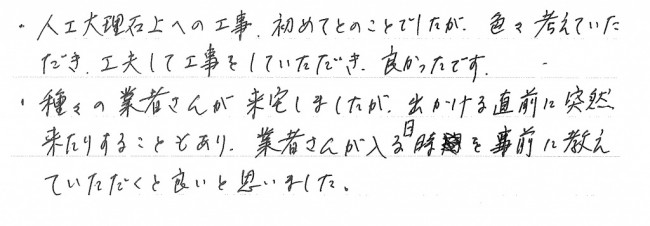 ・人工大理石上への工事、初めてとのことでしたが、色々考えていた
だき、工夫して工事をしていただき、良かったです。
・種々の業者さんが来宅しましたが、出かける直前に突然
来たりすることもあり、業者さんが入る日時を事前に教え
ていただくと良いと思いました。